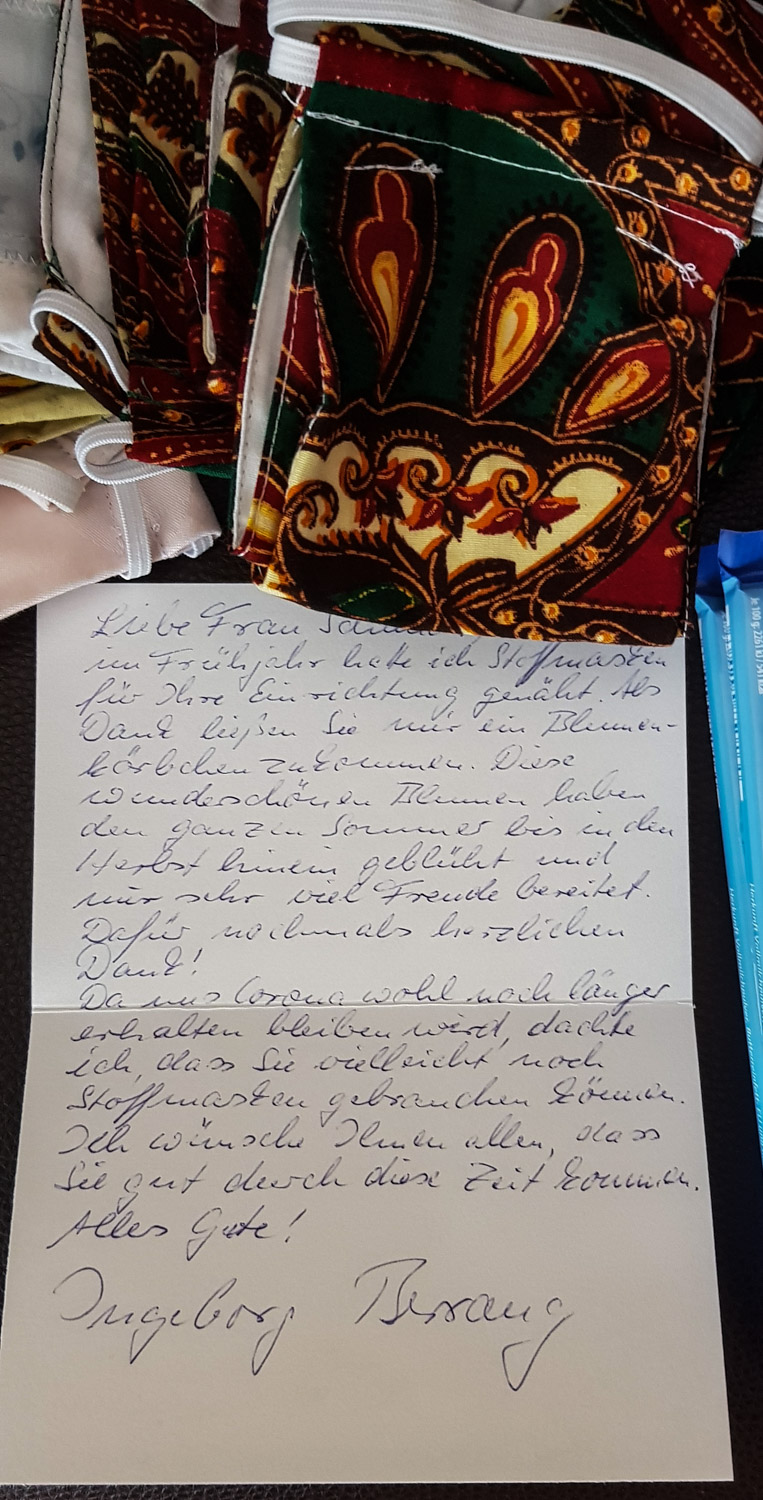 Liebe Frau
im Frühjahr hatte ich Stoffmasken
für Ihre Einrichtung genäht. Als
Dank ließen Sie mir ein Blumen-
körbchen zukommen. Diese
wunderschönen Blumen haben
den ganzen Sommer bis in den
Herbst hinein geblüht und
mir sehr viel Freude bereitet.
Dafür nochmals herzlichen
Dank!
Da uns Corona wohl noch länger
erhalten bleiben wird, dachte
ich, dass Sie vielleicht noch
Stoffmasken gebrauchen können.
Ich wünsche Ihnen allen, dass
Sie gut durch diese Zeit kommen.
Alles Gute!
Ingeborg Berrang